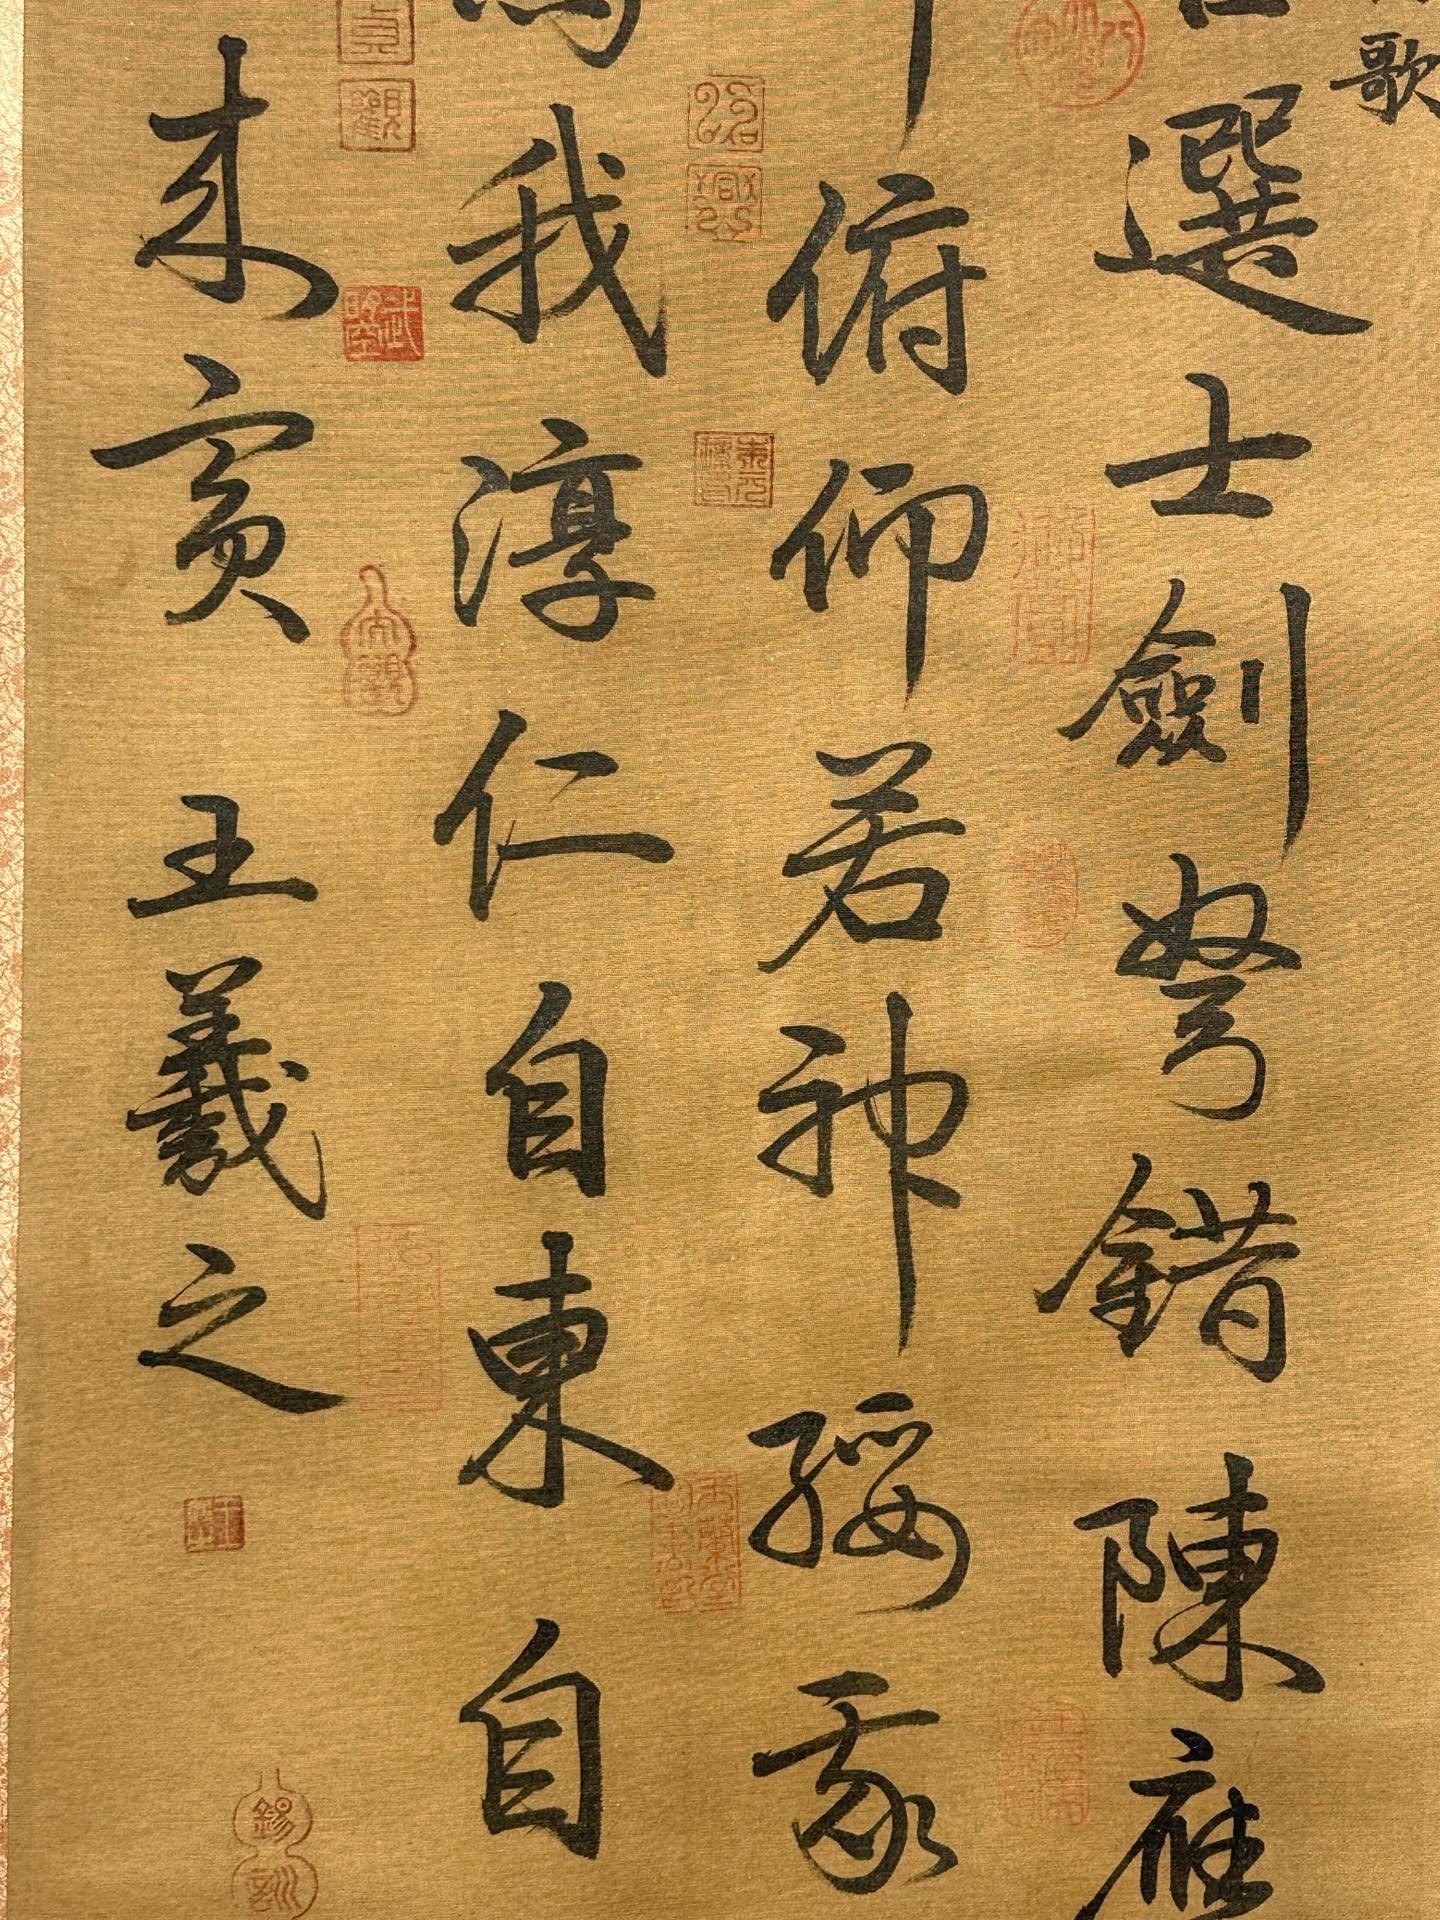 歌
選士劍弩錯陳應
俯仰若神綏我
為我淳仁自東自
來賓 王羲之